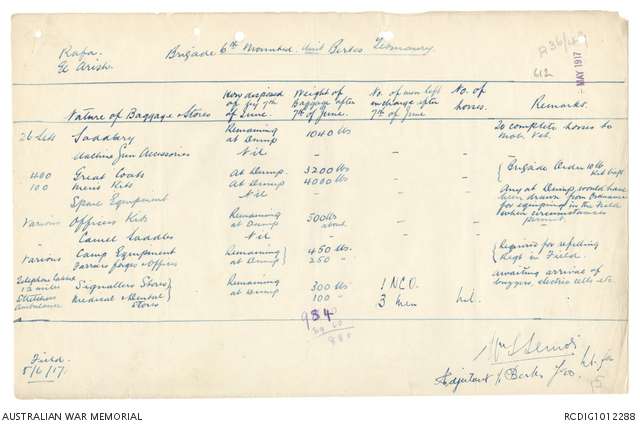 Rafa.
El Arish.
Brigade 6th Mounted. Unit Berks Yeomanry.
612
MAY 1917
Nature of Baggage & Stores
How disposed of by 7th of June.
Weight of Baggage after 7th of June.
No. of men left in charge after 7th of June
No. of horses.
Remarks.
26 Sets Saddlery Remaining at Dump 1040 lbs - - 26 complete horses to Mob. Vet.
Machine Gun Accessories Nil - - -
400 Great Coats At Dump 3200 lbs - - { Brigade Order 10 lb Kit left
100 Men's Kits At Dump 4000 lbs - -
Spare Equipment Nil - - - Any at Dump, would have been drawn from Ordnance for equiping in the Field when circumstances permit.
Various Officers Kits Remaining at Dump 500 lbs about - -
" Camel Saddles Nil - - -
Various Camp Equipment Remaining 450 lbs. - - { Required for refilling
Farriers forges & offices at Dump 250 " Regt in Field.
Telephone Cable 12 miles Signallers Stores Remaining 300 lbs 1 NCO. awaiting arrival of buzzers, electric cells etc
Stretchers Ambulance Medical & Dental Stores at Dump 100 " 3 men nil.
9840
Field.
5/6/17.
Lt. for
Adjutant 1/1 Berks Yeo.
15
AUSTRALIAN WAR MEMORIAL
RCDIG1012288